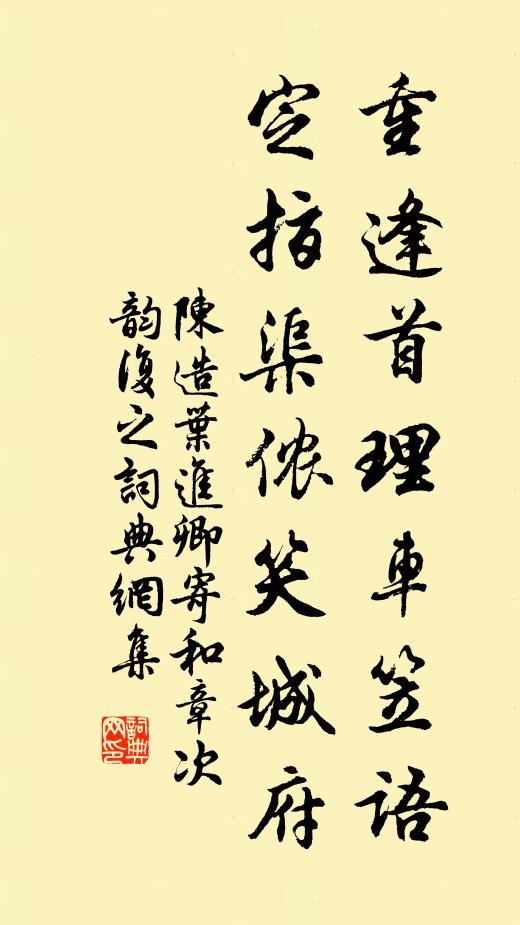 重逢首理車笠語
定指渠儂笑城府
陳造葉進卿寄和章次
韵復之詞典網集
詞典網印